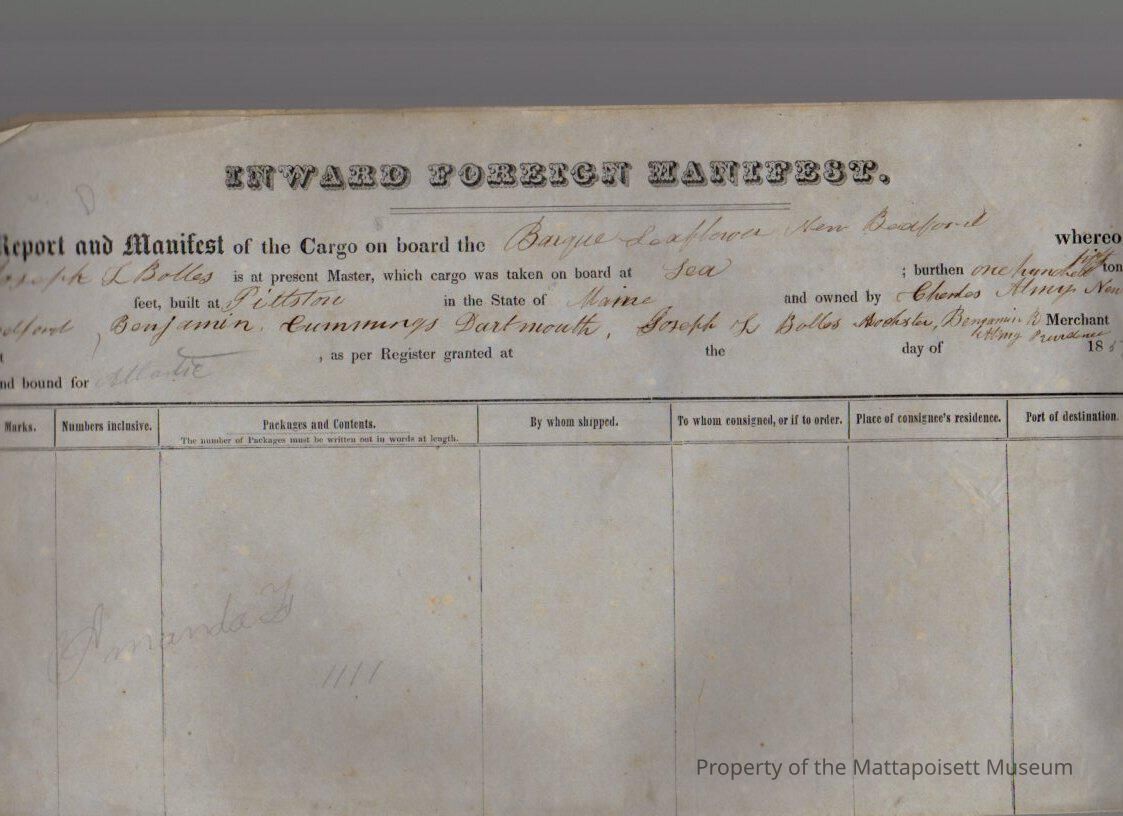 D
INWARD FOREIGN MANIFEST.
Report and Manifest of the Cargo on board the Barque Leaflower New Bedford whereo
oseph L Bolles is at present Master, which cargo was taken on board at Sea ; burthen one hundred fifty ton
feet, built at Pittston in the State of Maine and owned by Charles Almy New
edford, Benjamin Cummings Dartmouth, Joseph L Bolles Rochester, Benjamin R Merchant
Almy Providence
t , as per Register granted at the day of 185
nd bound for Atlantic
Marks. Numbers inclusive. Packages and Contents. By whom shipped. To whom consigned, or if to order. Place of consignee's residence. Port of destination.
The number of Packages must be written out in words at length.
Amanda F
1111
Property of the Mattapoisett Museum